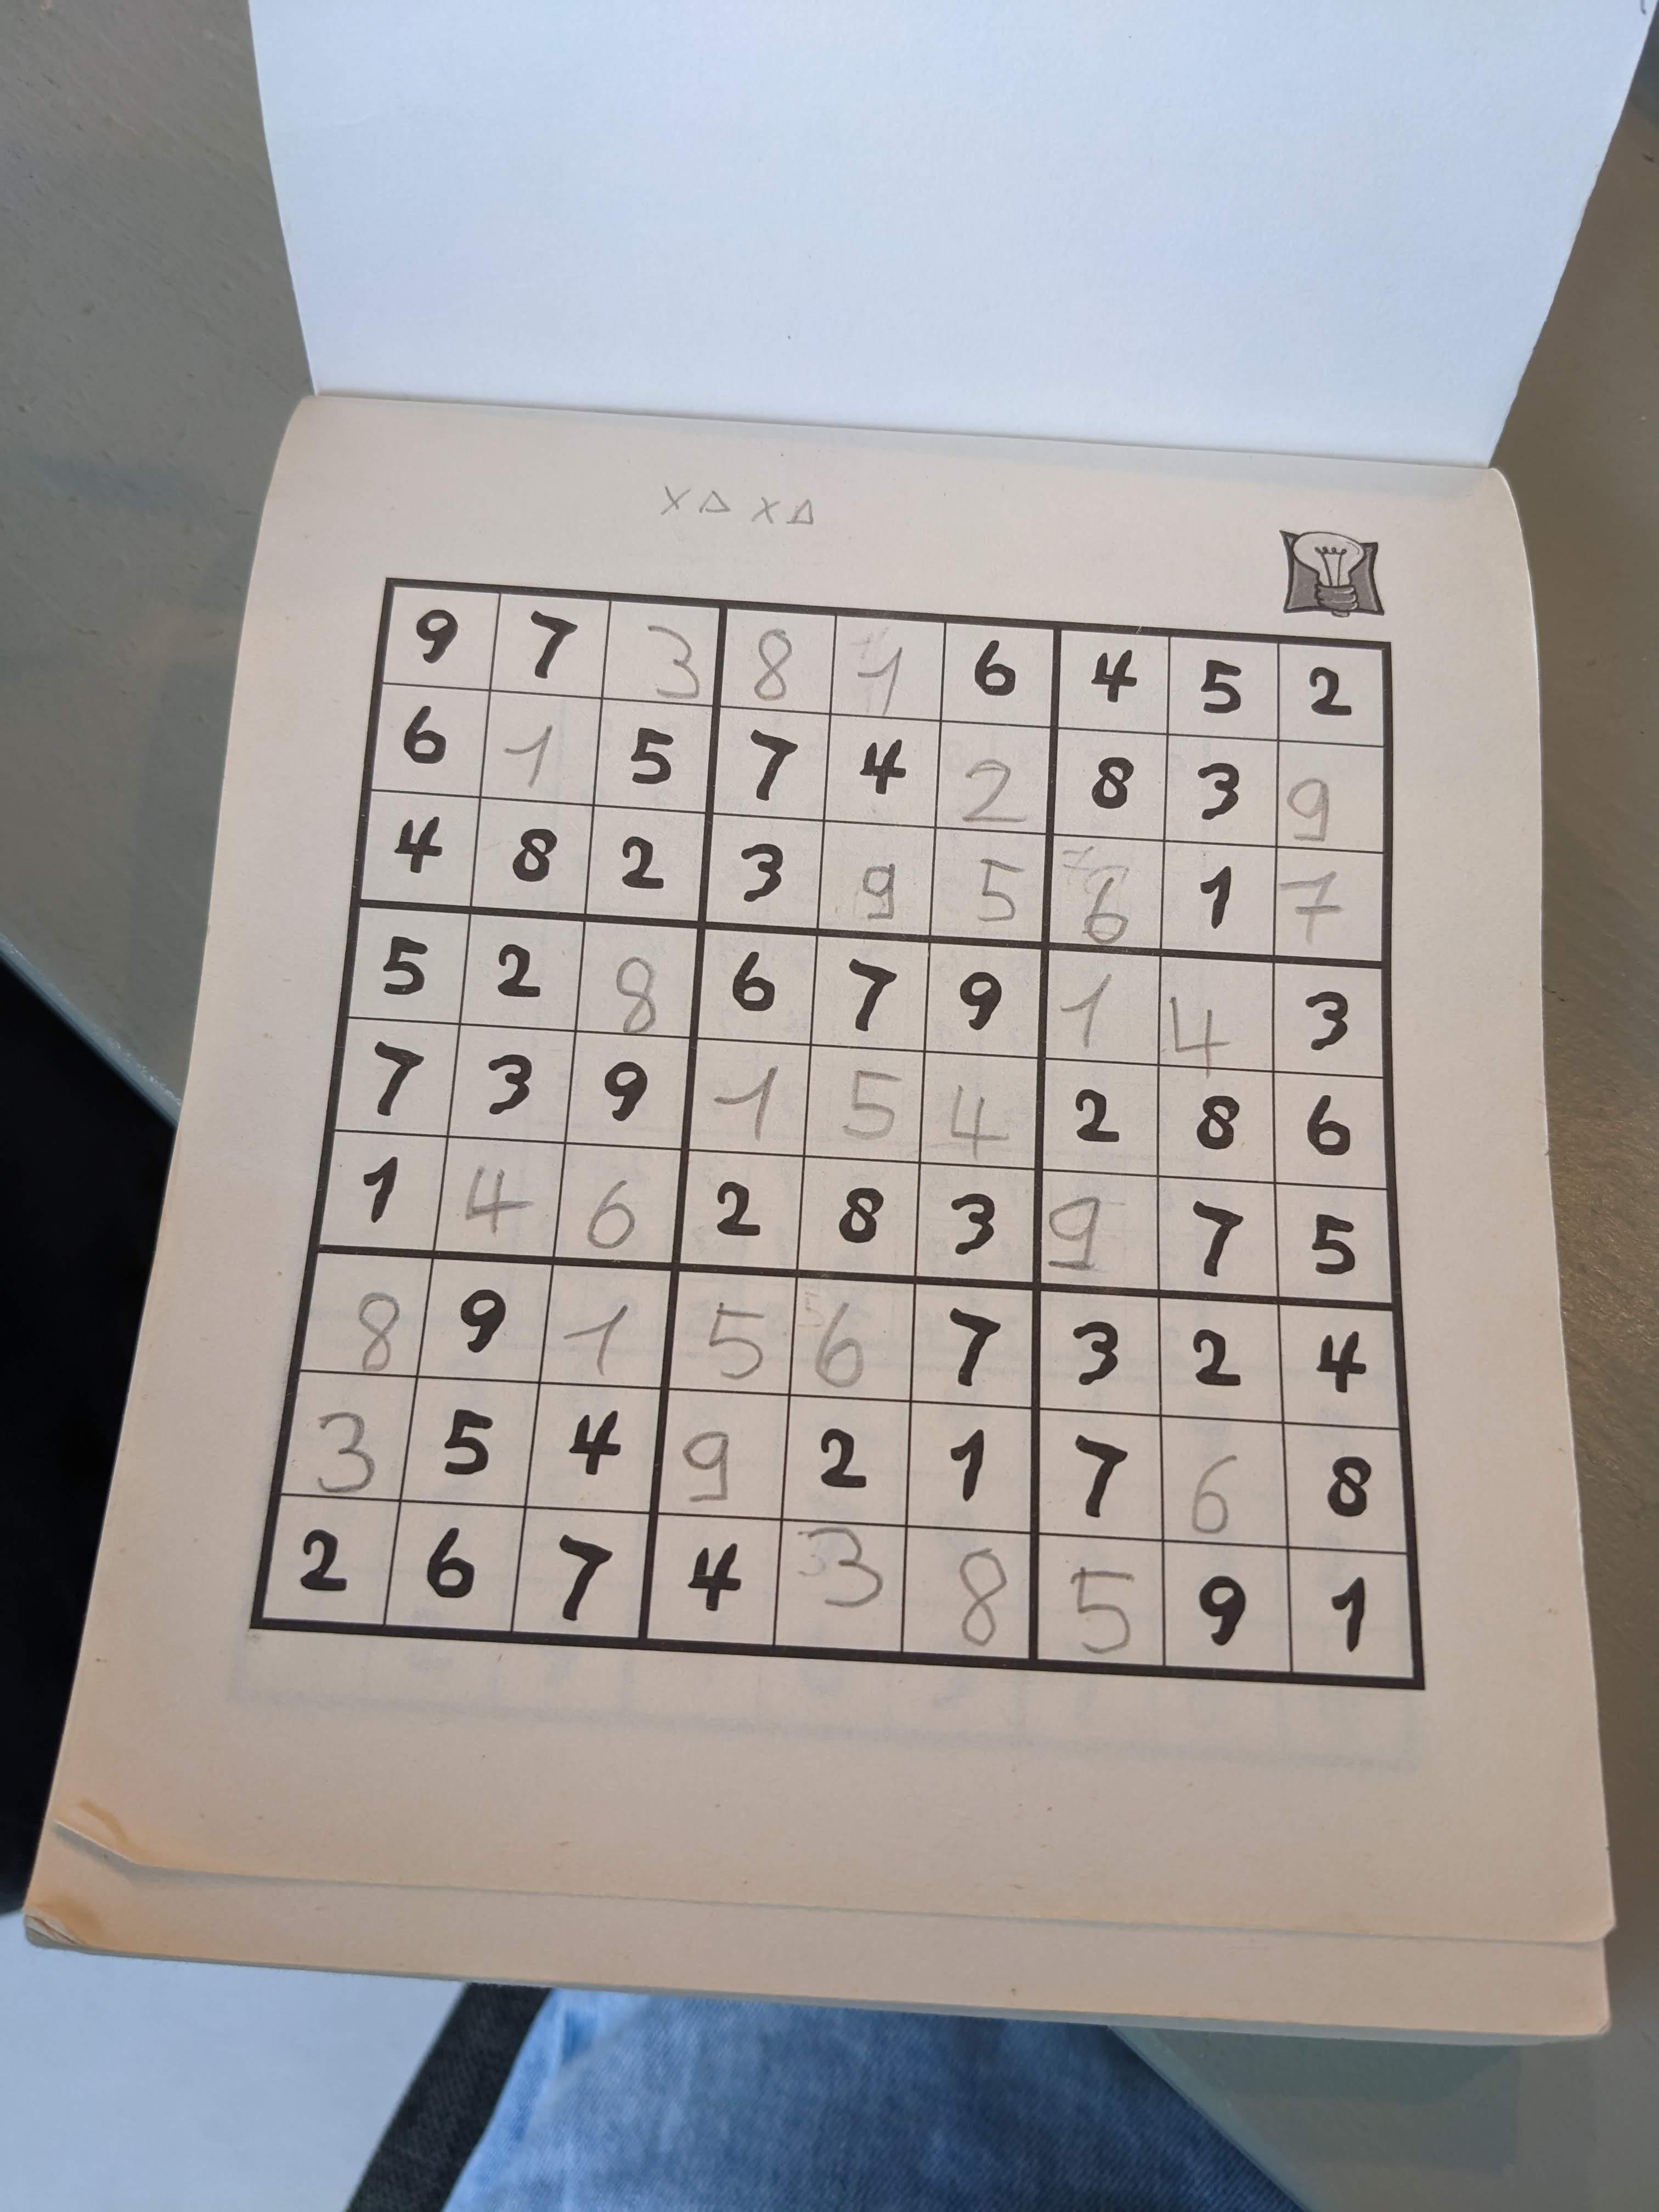 X Δ X Δ
9 7 3 8 1 6 4 5 2
6 1 5 7 4 2 8 3 9
4 8 2 3 9 5 6 1 7
5 2 8 6 7 9 1 4 3
7 3 9 1 5 4 2 8 6
1 4 6 2 8 3 9 7 5
8 9 1 5 6 7 3 2 4
3 5 4 9 2 1 7 6 8
2 6 7 4 3 8 5 9 1